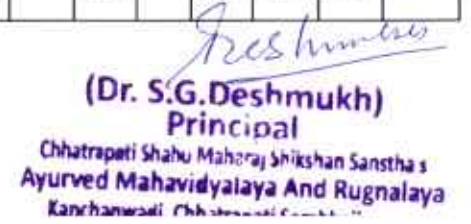 (Dr. S.G.Deshmukh)
Principal
Chhatrapati Shahu Maharaj Shikshan Sanstha s
Ayurved Mahavidyalaya And Rugnalaya
Kanchanwadi, Chhatrapati